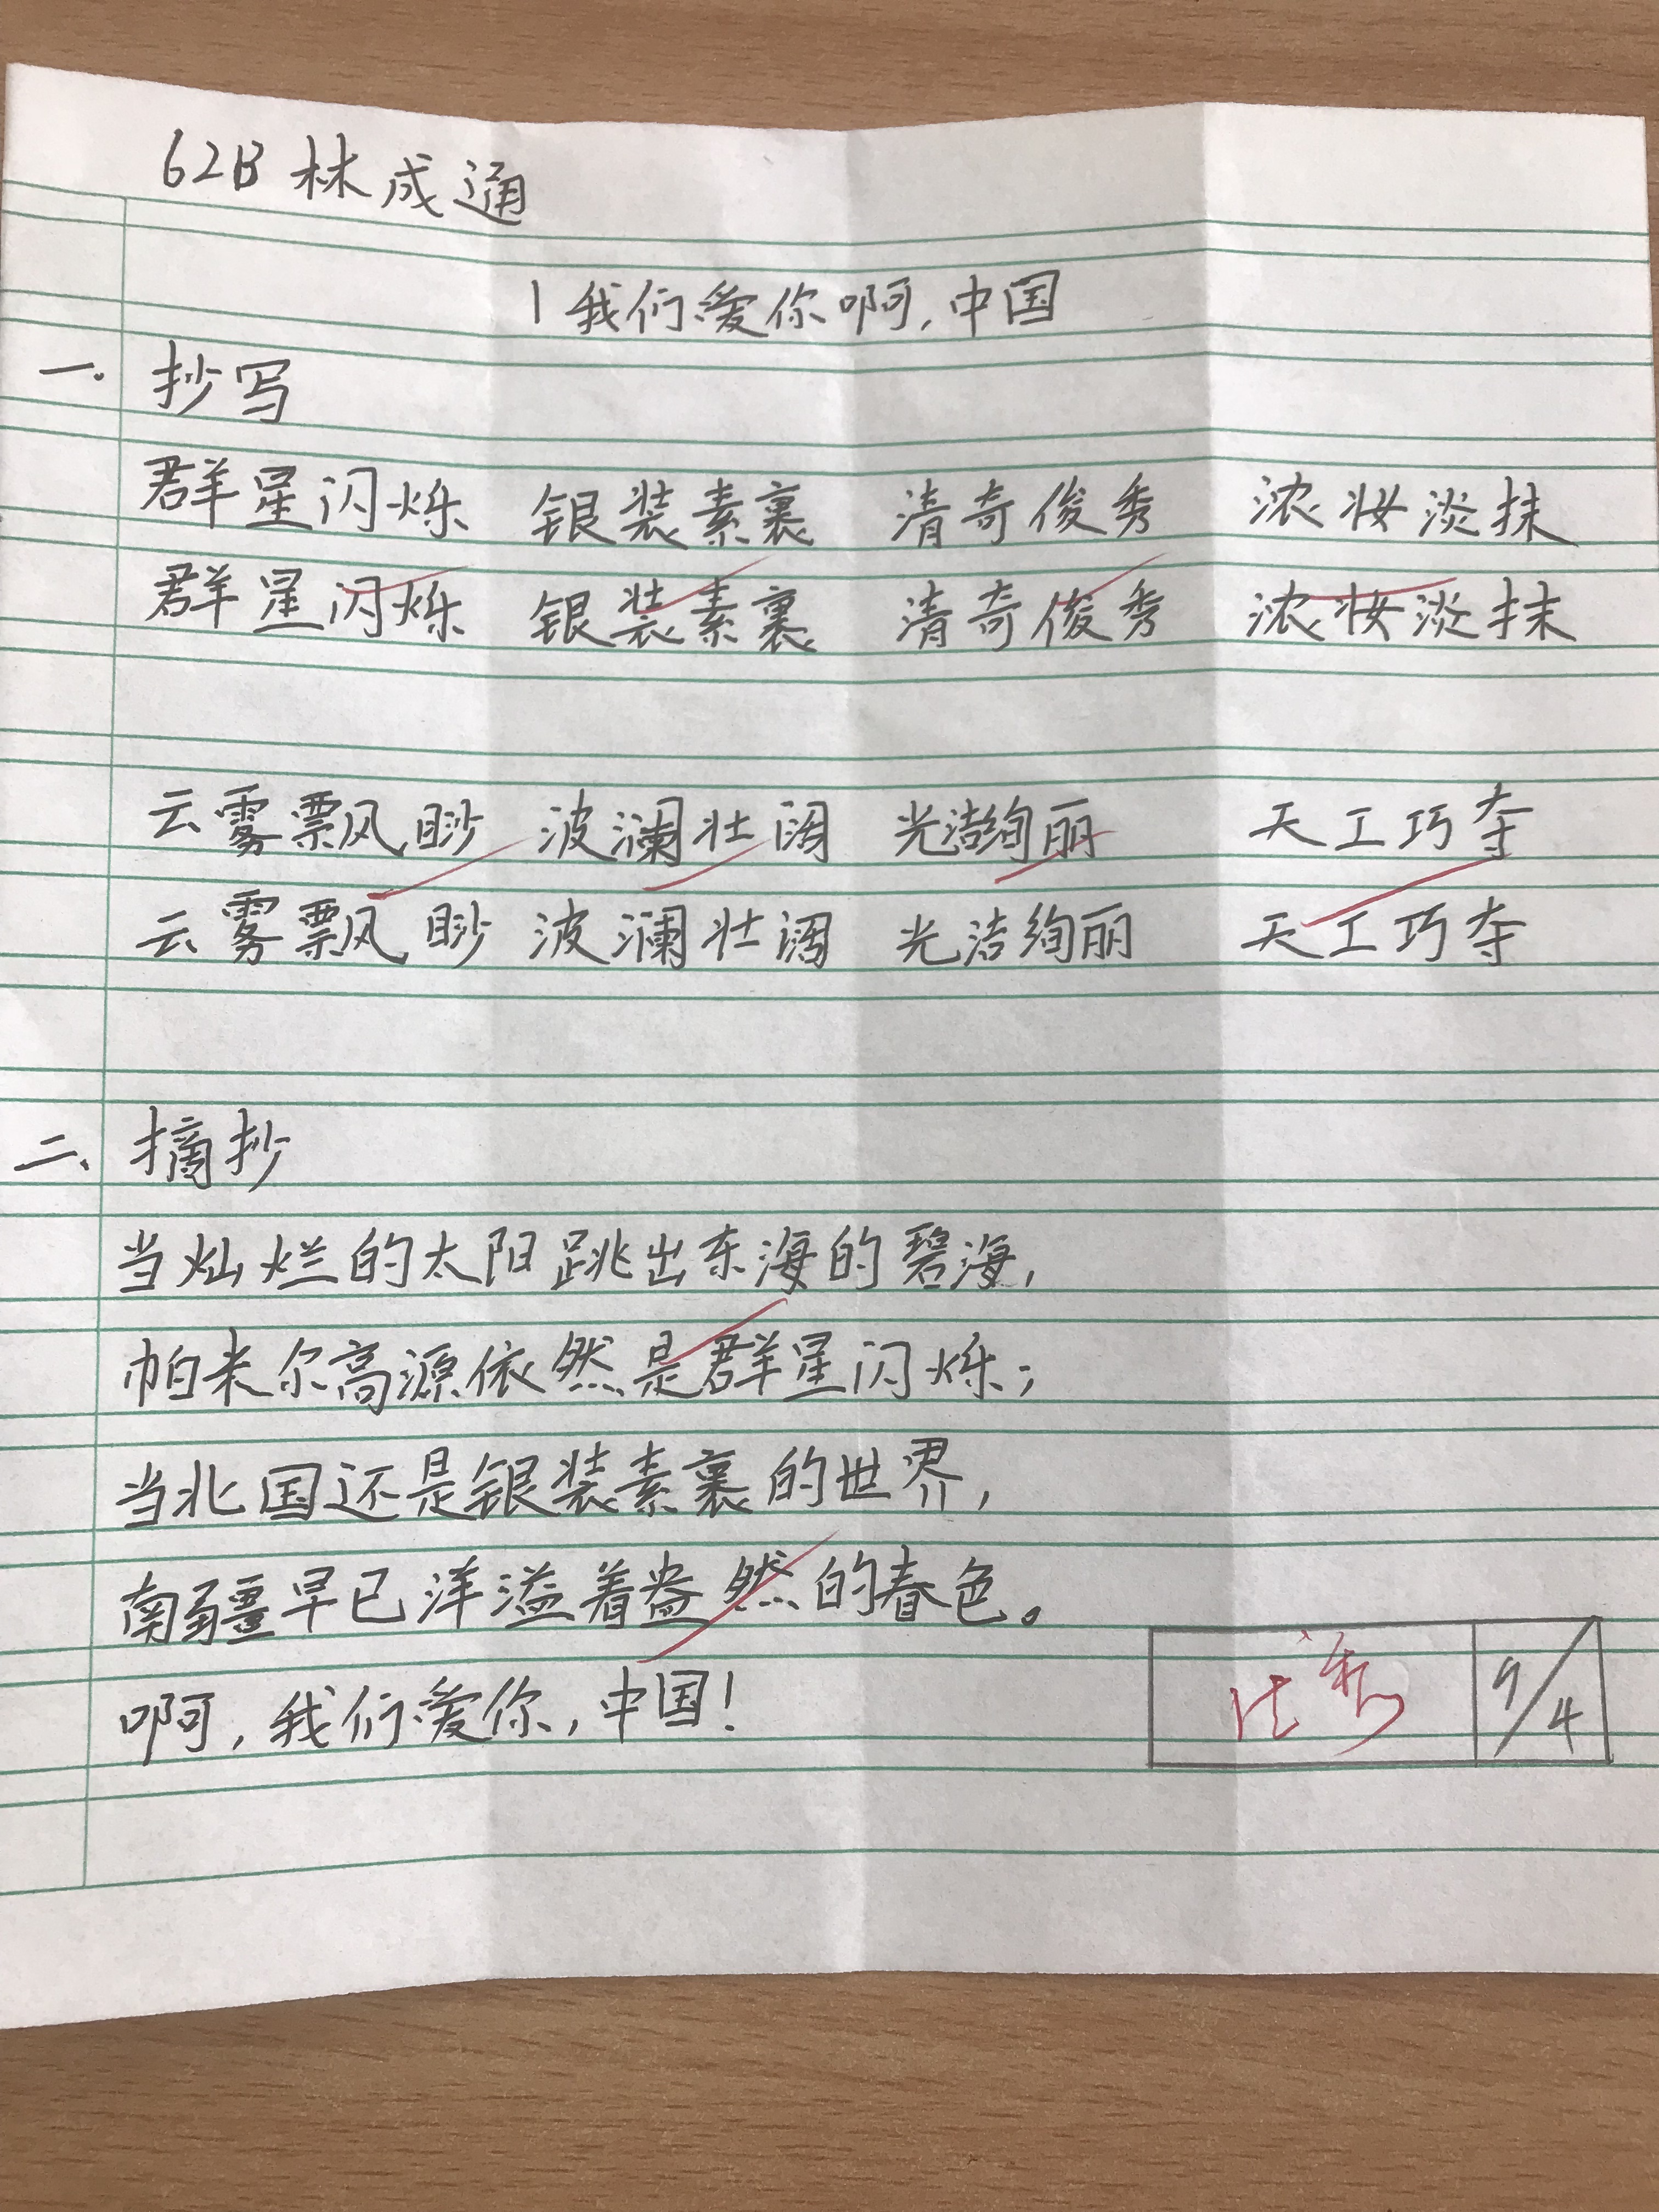 62B 林成通
1 我们爱你啊,中国
一. 抄写
群星闪烁 银装素裹 清奇俊秀 浓妆淡抹
群星闪烁 银装素裹 清奇俊秀 浓妆淡抹
云雾飘眇 波澜壮阔 光洁绚丽 天工巧夺
云雾飘眇 波澜壮阔 光洁绚丽 天工巧夺
二、摘抄
当灿烂的太阳跳出东海的碧海,
帕米尔高源依然是群星闪烁;
当北国还是银装素裹的世界,
南疆早已洋溢着盎然的春色。
啊,我们爱你,中国!
优秀 9/4